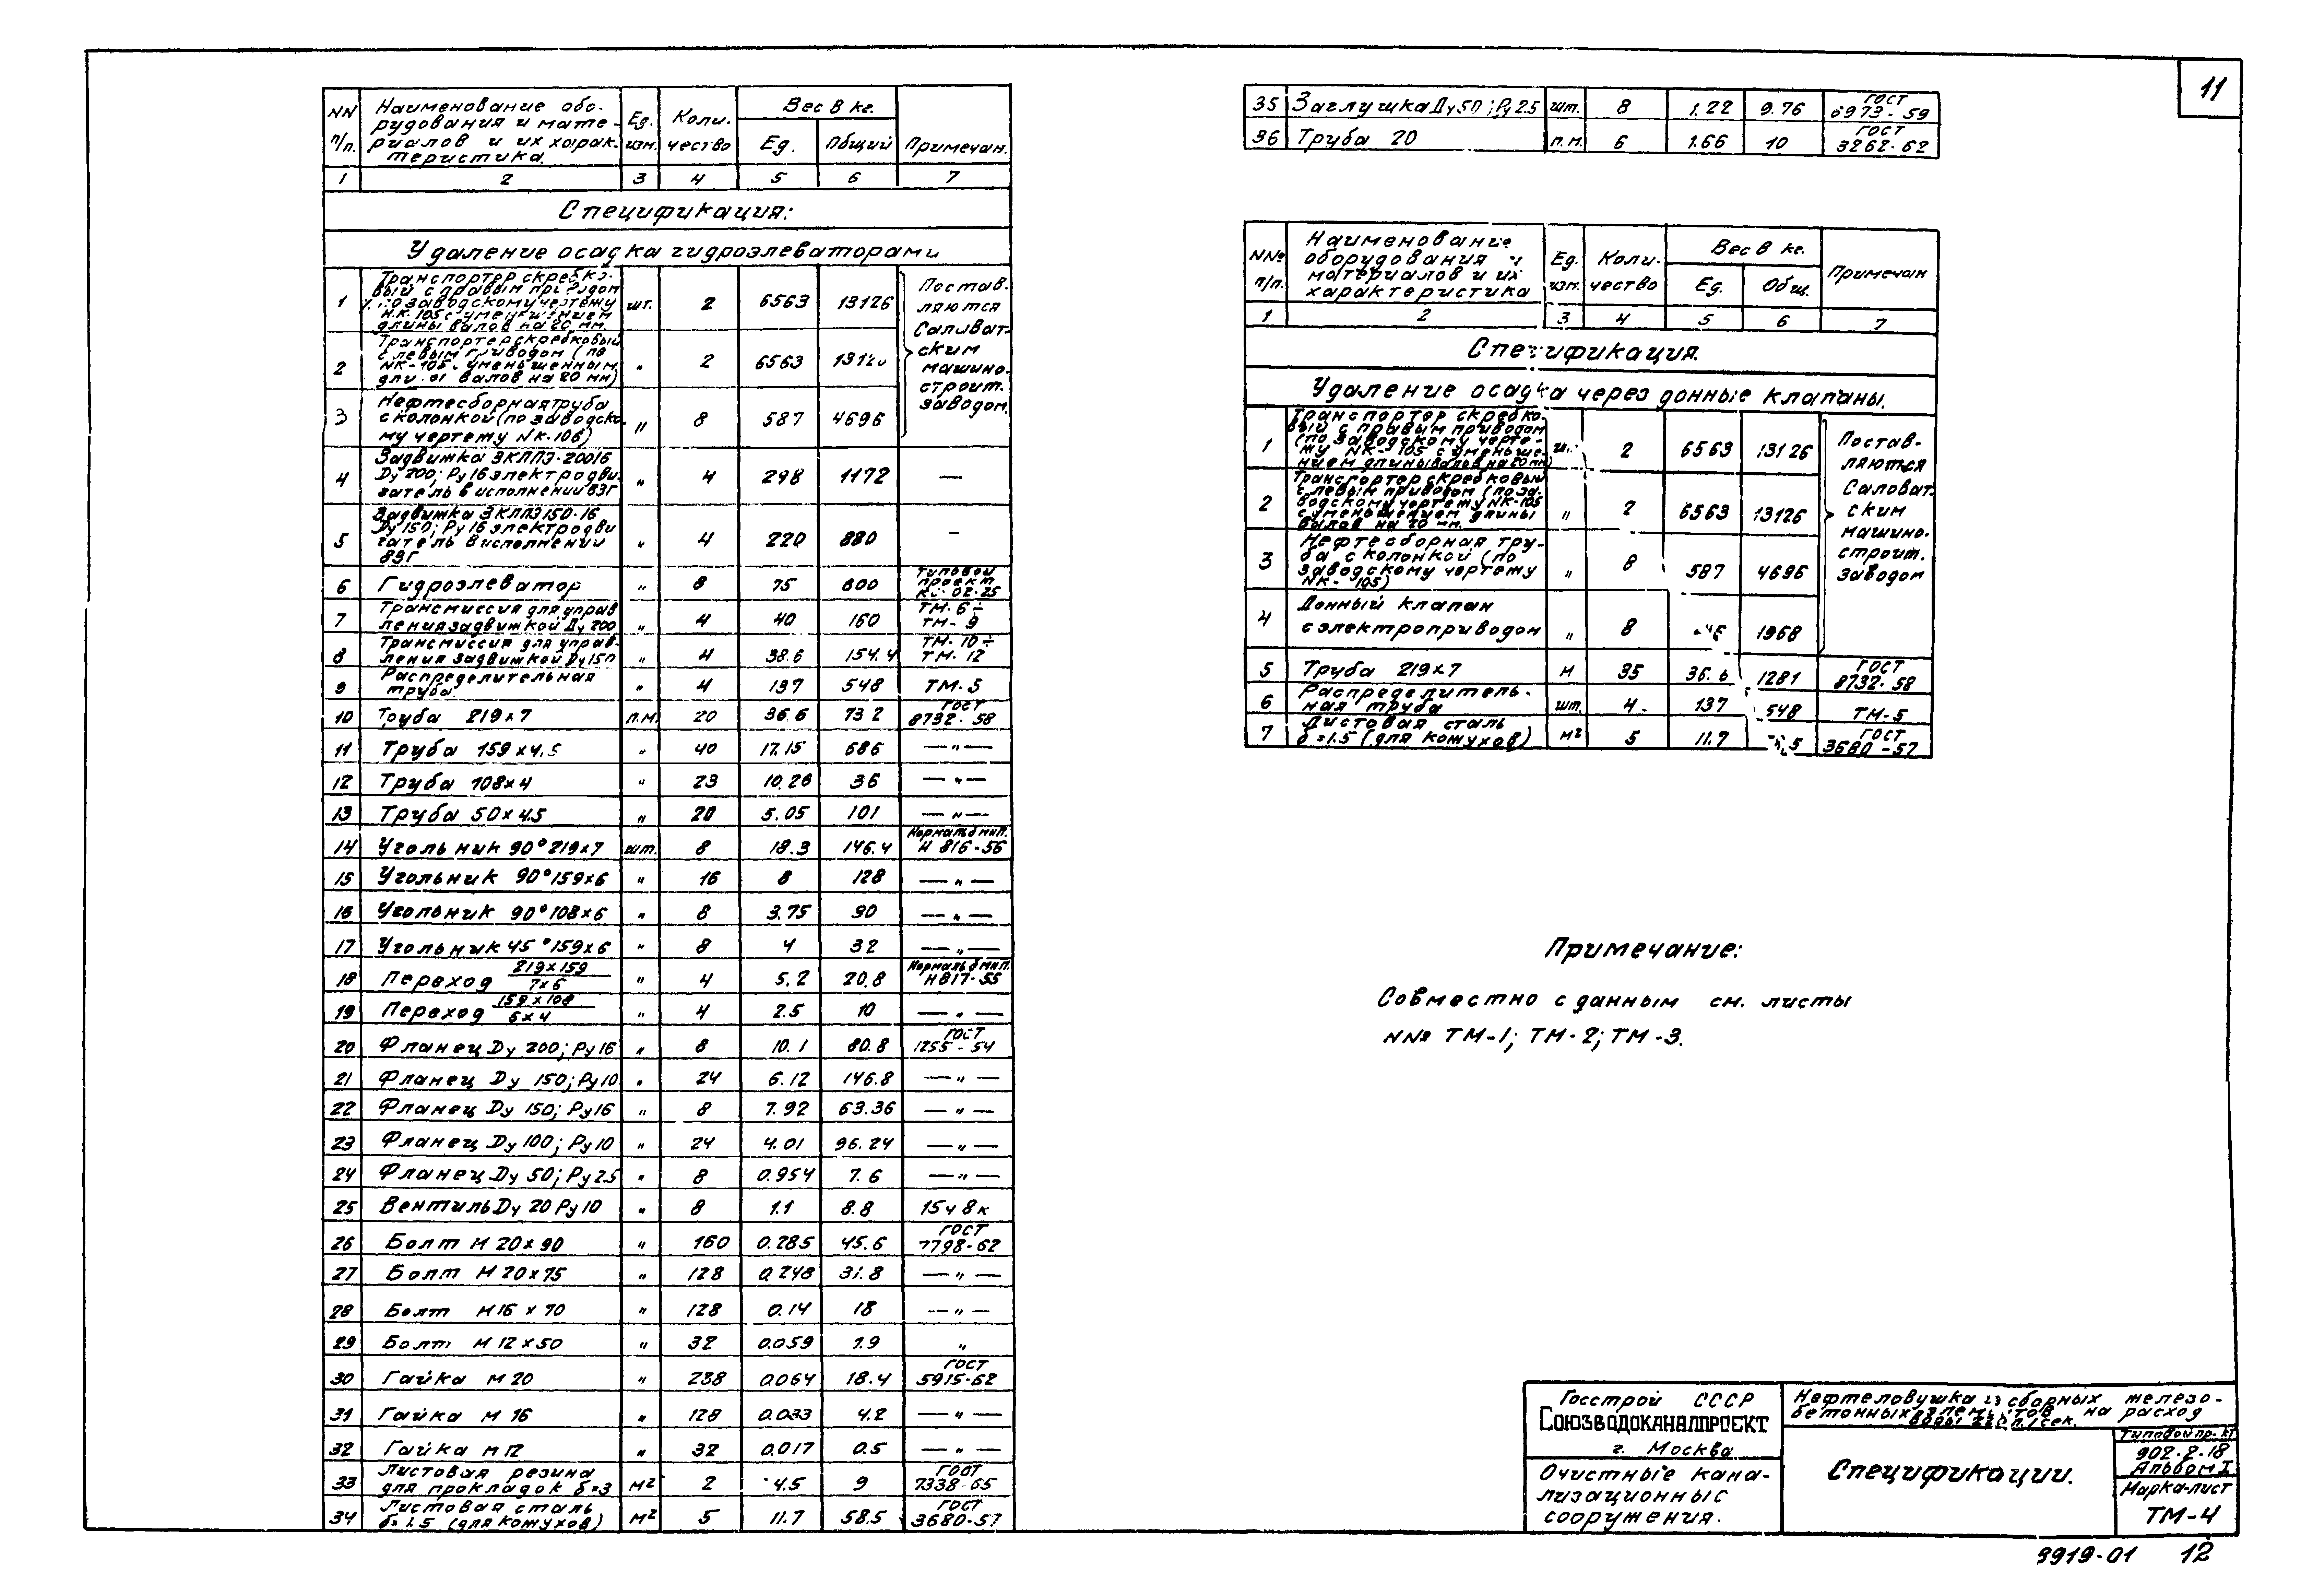 11
NN п/п. | Наименование обо-рудования и мате-риалов и их харак-теристика. | Ед. изм. | Коли-чество | Вес в кг. Ед. | Общий | Примечан.
1 | 2 | 3 | 4 | 5 | 6 | 7
Спецификация:
Удаление осадка гидроэлеваторами
1 | Транспортер скребко-вый с правым приводом по заводскому чертежу Н.К. 105 с уменьшением длины валов на 20 мм. | шт. | 2 | 6563 | 13126 | Постав-ляются Салават-ским машино-строит. заводом.
2 | Транспортер скребковый с левым приводом (по NК-105 уменьшенным валов на 20 мм) | " | 2 | 6563 | 13126
3 | Нефтесборная труба с колонкой (по заводско-му чертежу NК-106) | " | 8 | 587 | 4696
4 | Задвижка ЗКЛПЭ-20016 Ду 200; Ру 16 электродви-гатель в исполнении ВЗГ | " | 4 | 298 | 1172 | —
5 | Задвижка ЗКЛПЭ 150-16 Ду 150; Ру 16 электродви гатель в исполнении ВЗГ | " | 4 | 220 | 880 | —
6 | Гидроэлеватор | " | 8 | 75 | 600 | Типовой проект 02-25
7 | Трансмиссия для управ ления задвижкой Ду 200 | " | 4 | 40 | 160 | ТМ-6 ÷ ТМ-9
8 | Трансмиссия для управ-ления задвижкой Ду 150 | " | 4 | 38.6 | 154.4 | ТМ-10 ÷ ТМ-12
9 | Распределительная труба. | " | 4 | 137 | 548 | ТМ-5
10 | Труба 219×7 | п.м. | 20 | 36.6 | 732 | ГОСТ 8732-58
11 | Труба 159×4.5 | " | 40 | 17.15 | 686 | — " —
12 | Труба 108×4 | " | 23 | 10.26 | 36 | — " —
13 | Труба 50×4.5 | " | 20 | 5.05 | 101 | — " —
14 | Угольник 90° 219×7 | шт. | 8 | 18.3 | 146.4 | Нормаль бмнп. Н 816-56
15 | Угольник 90° 159×6 | " | 16 | 8 | 128 | — " —
16 | Угольник 90° 108×6 | " | 8 | 3.75 | 90 | — " —
17 | Угольник 45° 159×6 | " | 8 | 4 | 32 | — " —
18 | Переход 219×159 / 7×6 | " | 4 | 5.2 | 20.8 | Нормаль бмнп. Н817-55
19 | Переход 159×108 / 6×4 | " | 4 | 2.5 | 10 | — " —
20 | Фланец Ду 200; Ру 16 | " | 8 | 10.1 | 80.8 | ГОСТ 1255-54
21 | Фланец Ду 150; Ру 10 | " | 24 | 6.12 | 146.8 | — " —
22 | Фланец Ду 150; Ру 16 | " | 8 | 7.92 | 63.36 | — " —
23 | Фланец Ду 100; Ру 10 | " | 24 | 4.01 | 96.24 | — " —
24 | Фланец Ду 50; Ру 2.5 | " | 8 | 0.954 | 7.6 | — " —
25 | Вентиль Ду 20 Ру 10 | " | 8 | 1.1 | 8.8 | 15ч8к
26 | Болт М 20×90 | " | 160 | 0.285 | 45.6 | ГОСТ 7798-62
27 | Болт М 20×75 | " | 128 | 0.248 | 31.8 | — " —
28 | Болт М16×70 | " | 128 | 0.14 | 18 | — " —
29 | Болт М 12×50 | " | 32 | 0.059 | 1.9 | "
30 | Гайка М 20 | " | 288 | 0.064 | 18.4 | ГОСТ 5915-62
31 | Гайка М 16 | " | 128 | 0.033 | 4.2 | — " —
32 | Гайка М 12 | " | 32 | 0.017 | 0.5 | — " —
33 | Листовая резина для прокладок δ=3 | м² | 2 | 4.5 | 9 | ГОСТ 7338-65
34 | Листовая сталь δ=1.5 (для кожухов) | м² | 5 | 11.7 | 58.5 | ГОСТ 3680-57
35 | Заглушка Ду 50; Ру 2.5 | шт. | 8 | 1.22 | 9.76 | ГОСТ 6973-59
36 | Труба 20 | п.м. | 6 | 1.66 | 10 | ГОСТ 3262-62
NN° п/п. | Наименование оборудования и материалов и их характеристика | Ед. изм. | Коли-чество | Вес в кг. Ед. | Общ. | Примечан
1 | 2 | 3 | 4 | 5 | 6 | 7
Спецификация.
Удаление осадка через донные клапаны.
1 | Транспортер скребко-вый с правым приводом (по заводскому черте-жу NК-105 с уменьше-нием длины валов на 20 мм) | ш. | 2 | 6563 | 13126 | Постав-ляются Салават-ским машино-строит. заводом
2 | Транспортер скребковый с левым приводом (по за-водскому чертежу NК-105 с уменьшением длины валов на 20 мм. | " | 2 | 6563 | 13126
3 | Нефтесборная тру-ба с колонкой (по заводскому чертежу NК-105) | " | 8 | 587 | 4696
4 | Донный клапан с электроприводом | " | 8 | 1968
5 | Труба 219×7 | м | 35 | 36.6 | 1281 | ГОСТ 8732-58
6 | Распределитель-ная труба | шт. | 4 | 137 | 548 | ТМ-5
7 | Листовая сталь δ=1.5 (для кожухов) | м² | 5 | 11.7 | ГОСТ 3680-57
Примечание:
Совместно с данным см. листы
NN° ТМ-1; ТМ-2; ТМ-3.
Госстрой СССР
СОЮЗВОДОКАНАЛПРОЕКТ
г. Москва
Очистные кана-
лизационные
сооружения.
Нефтеловушка из сборных железо-
бетонных элементов на расход
воды л/сек.
Спецификации.
Типовой пр-кт
902-2-18
Альбом I
Марка-лист
ТМ-4
3919-01 12